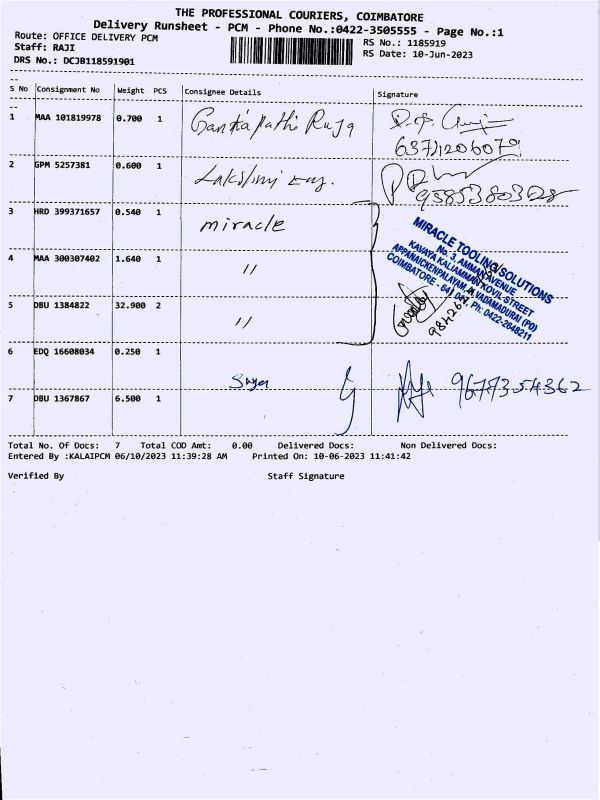 THE PROFESSIONAL COURIERS, COIMBATORE
Delivery Runsheet - PCM - Phone No.:0422-3505555 - Page No.:1
Route: OFFICE DELIVERY PCM
RS No.: 1185919
Staff: RAJI
RS Date: 10-Jun-2023
DRS No.: DCJB118591901
S No Consignment No Weight PCS Consignee Details Signature
1 MAA 101819978 0.700 1
6374206079
2 GPM 5257381 0.600 1 Lakshmi Eng.
9585380328
3 HRD 399371657 0.540 1 miracle
4 MAA 300307402 1.640 1 "
5 DBU 1384822 32.900 2 "
MIRACLE TOOLING SOLUTIONS
No. 3, AMMAN AVENUE
KAVAYA KALIAMMAN KOVIL STREET
APPANAICKENPALAYAM, VADAMADURAI (PO)
COIMBATORE - 641 Ph: 0422-2648211
6 EDQ 16608034 0.250 1
7 DBU 1367867 6.500 1
9677354362
Total No. Of Docs: 7 Total COD Amt: 0.00 Delivered Docs: Non Delivered Docs:
Entered By :KALAIPCM 06/10/2023 11:39:28 AM Printed On: 10-06-2023 11:41:42
Verified By Staff Signature